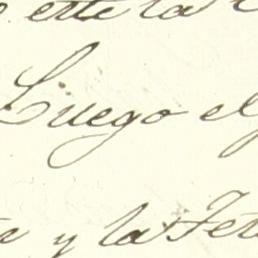 este la
Luego el
y la